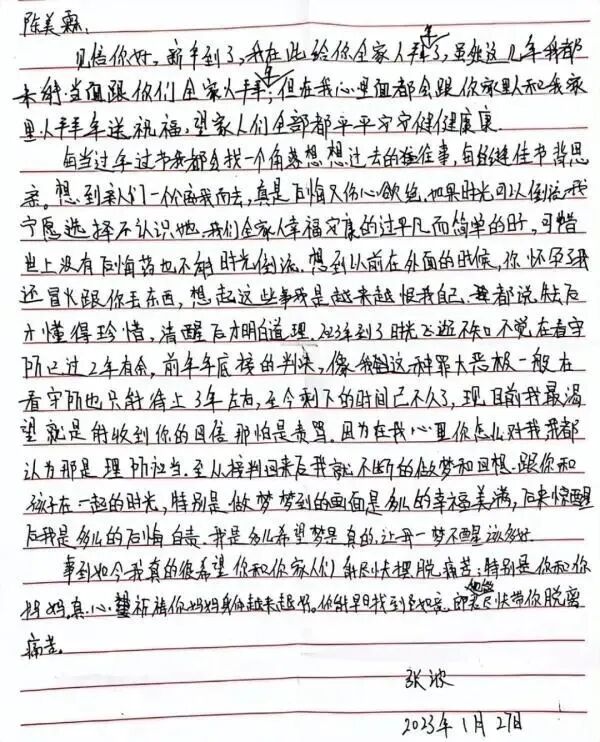 陈美霖:
见信你好,新年到了,我在此给你全家人拜年了,虽然这几年我都
未能当面跟你们全家人拜年,但在我心里面都会跟你家里人和我家
里人拜年送祝福,望家人们全部都平平安安健健康康
每当过年过节我都会找一个角落想想过去的往事,每逢佳节背思
亲。想到亲人们一个个离我而去,真是后悔又伤心欲绝,如果时光可以倒流我
宁愿选择不认识她,我们全家人幸福安康的过平凡而简单的日,可惜
世上没有后悔药也不能时光倒流。想到以前在外面的时候,你怀孕了我
还冒火跟你丢东西,想起这些事我是越来越恨我自己,都说失去后
才懂得珍惜,清醒后才明白道理。2023年到了时光飞逝不知不觉在看守
所已过2年有余,前年年底接的判决,像我这种罪大恶极一般在
看守所也只能待上3年左右,至今剩下的时间已不久了,现目前我最渴
望就是能收到你的回信那怕是责骂。因为在我心里你怎么对我我都
认为那是理所当。至从接判回来后我就不断的做梦和回想跟你和
孩子在一起的时光,特别是做梦梦到的画面是多么的幸福美满,后来惊醒
后我是多么的后悔自责。我是多么希望梦是真的,让我一梦不醒该多好
事到如今我真的很希望你和你家人们能尽快摆脱痛苦,特别是你和你
妈妈。真心祈祷你妈妈身体越来越好。你能早日找到如意郎君尽快带你脱离
痛苦。
张波
2023年1月27日